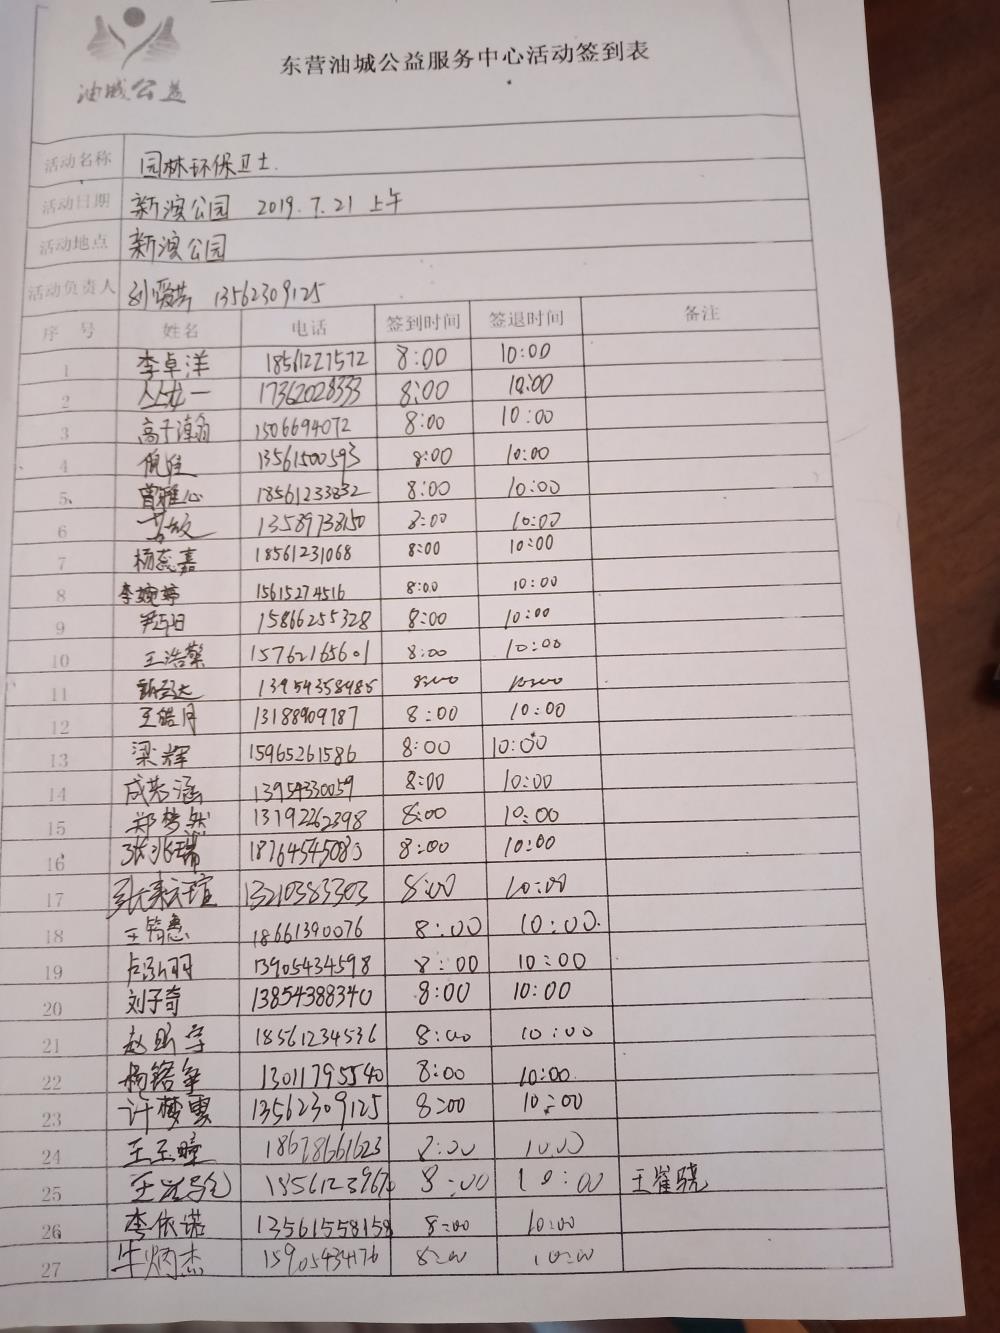 油城公益
东营油城公益服务中心活动签到表
活动名称 园林环保卫士.
活动日期 新滨公园 2019.7.21 上午
活动地点 新滨公园
活动负责人 刘爱芹 13562309125
序号 姓名 电话 签到时间 签退时间 备注
1 李卓洋 18561227572 8:00 10:00
2 17362028333 8:00 10:00
3 高千瀚 1506694072 8:00 10:00
4 倪佳 13561500593 8:00 10:00
5 曾雅心 18561233832 8:00 10:00
6 13589738150 8:00 10:00
7 杨蕊嘉 18561231068 8:00 10:00
8 李婉婷 15615274516 8:00 10:00
9 15866255328 8:00 10:00
10 王浩擎 15762165601 8:00 10:00
11 13954358485 8:00 10:00
12 王皓月 13188909787 8:00 10:00
13 梁辉 15965261586 8:00 10:00
14 成若涵 13954330059 8:00 10:00
15 郑梦然 13192262398 8:00 10:00
16 张兆瑞 18764545080 8:00 10:00
17 13210383303 8:00 10:00
18 王筠惠 18661390076 8:00 10:00.
19 卢泓羽 13905434598 8:00 10:00
20 刘子奇 13854388340 8:00 10:00
21 18561234536 8:00 10:00
22 13011795540 8:00 10:00
23 许梦雪 13562309125 8:00 10:00
24 王玉瞳 18678661623 8:00 10:00
25 1856123967 8:00 10:00 王崔骁
26 李依诺 13561558158 8:00 10:00
27 牛炳杰 15905434176 8:00 10:00